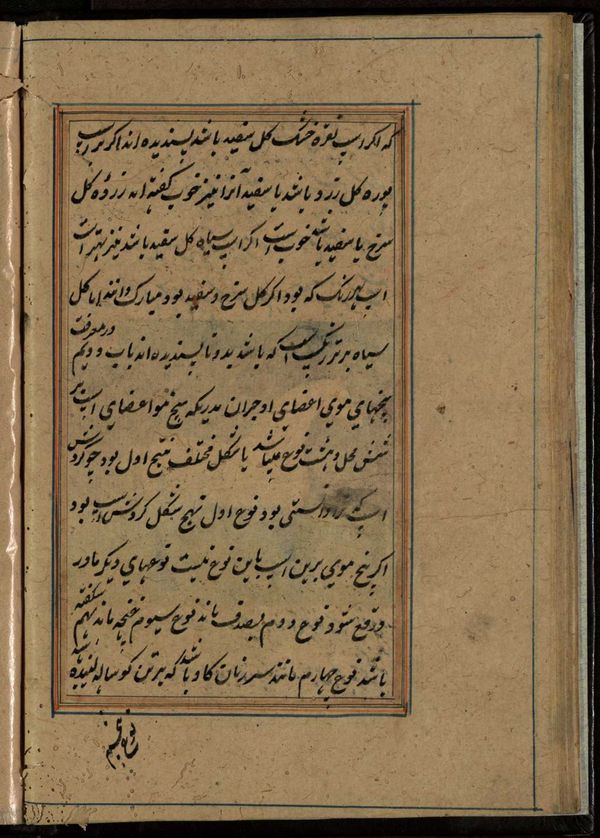 که اگر اسپ نقره خنک گل سفید باشد پسندیده اند اگر بر اسپ
بوره گل زرد باشد یا سفید آنرا نیز خوب گفته اند زرده گل
سرخ یا سفید باشد خوب است اگر اسپ سیاه گل سفید باشد نیز بهتر است
اسپ هر رنگ که بود اگر گل سرخ و سفید بود مبارک دانند اما گل
سیاه بر هر رنگ اسپ که باشد بد و ناپسندیده اند باب دویم
در معرفت
پیچهای موی اعضای او بدانکه پیچ مو اعضای اسپ بر
محل و هشت نوع میباشد باشکل مختلف پیچ اول بود چو گردش
اسپ که بود نوع اول پیچ بشکل گردش آب بود
اگر پیچ موی برین اسپ باین نوع نیست نوعهای دیگر مادر
وقع شود نوع دوم بصدف ماند نوع سیوم غنچه ماند نیم شکفته
باشد نوع چهارم مانند سر زبان گاو باشد که برتن گوساله لیسیده باشد
نوع پنجم